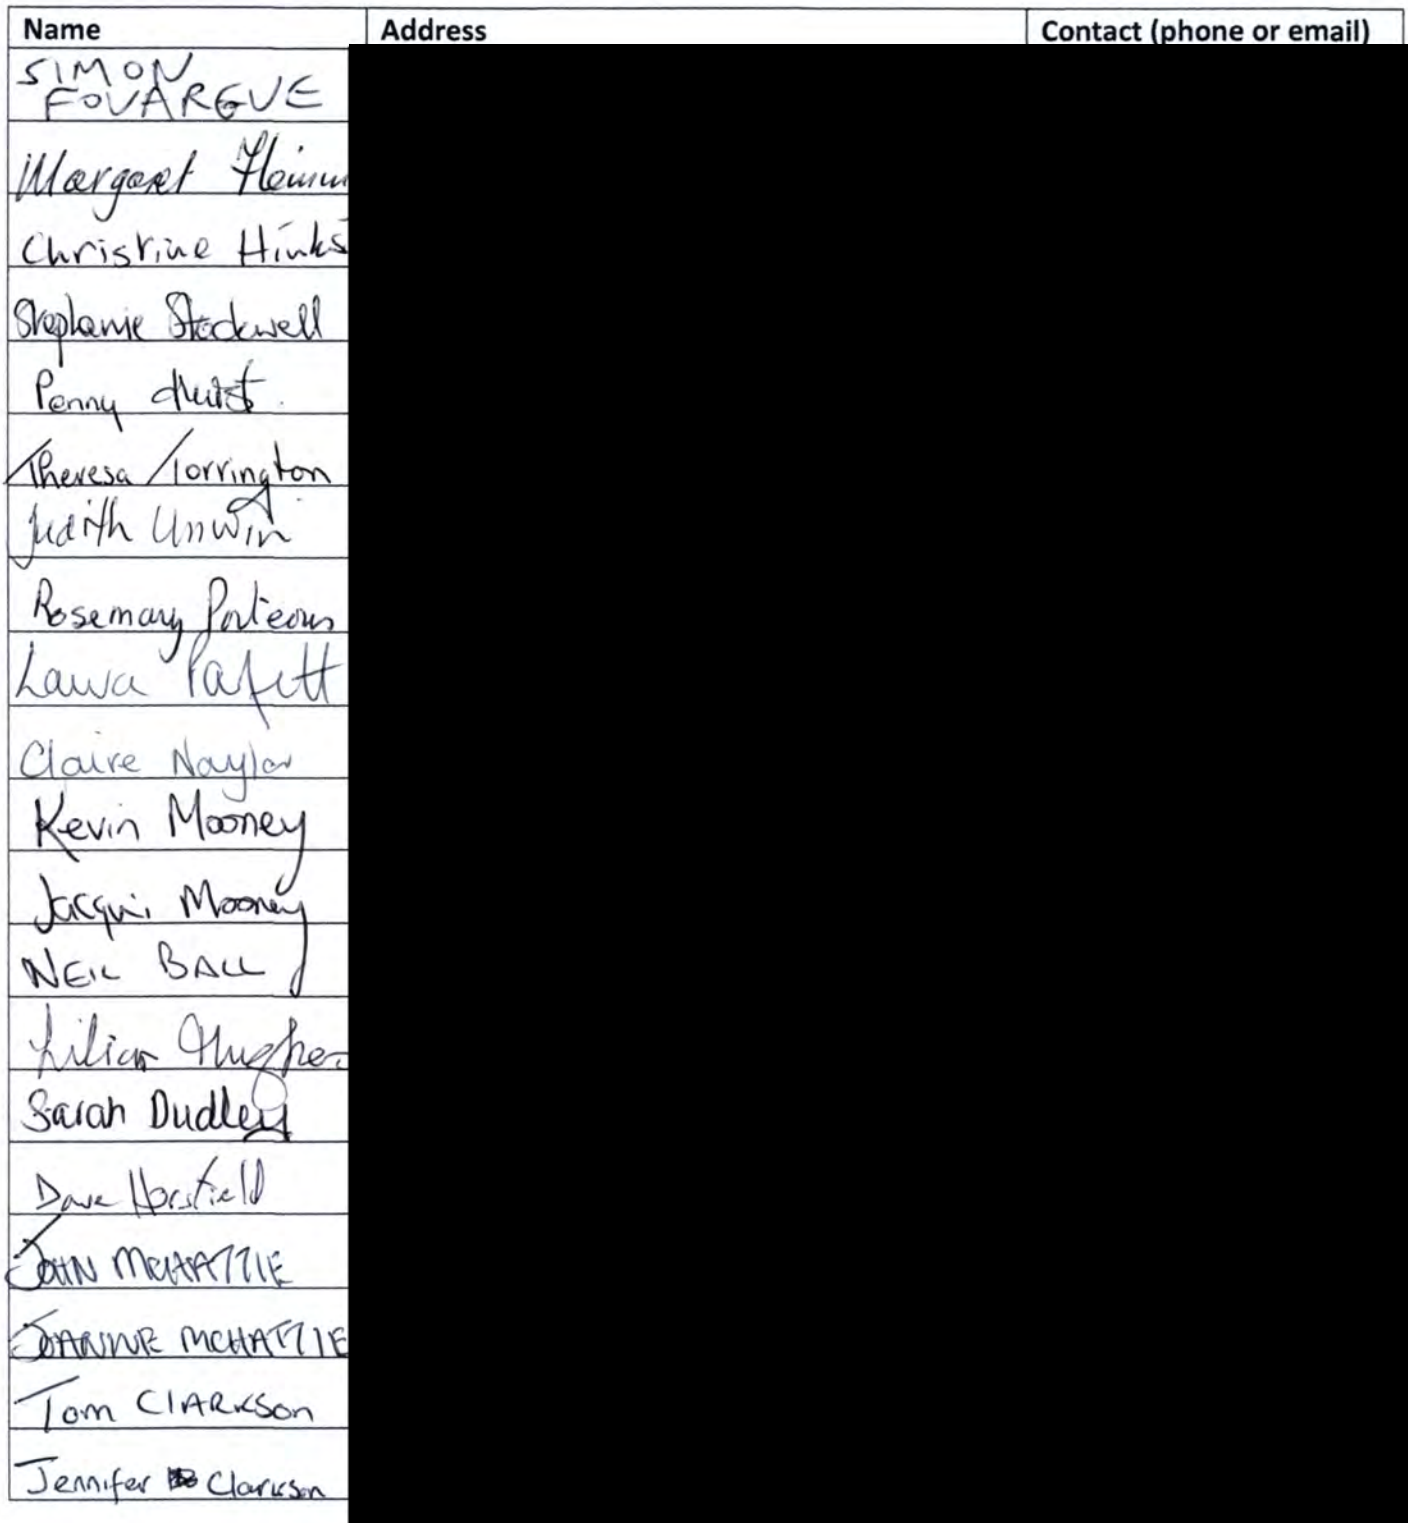 Name Address Contact (phone or email)
SIMON
FOVARGUE
Margaret
Christine Hinks
Stephanie Stockwell
Penny Hurst.
Theresa Torrington
Judith Unwin
Rosemary Porteous
Laura Pafett
Claire Naylor
Kevin Mooney
Jacqui Mooney
NEIL BALL
Lilian Hughes
Sarah Dudley
Dave Horsfield
JOHN MCHATTIE
JOANNE MCHATTIE
Tom CLARKSON
Jennifer Clarkson